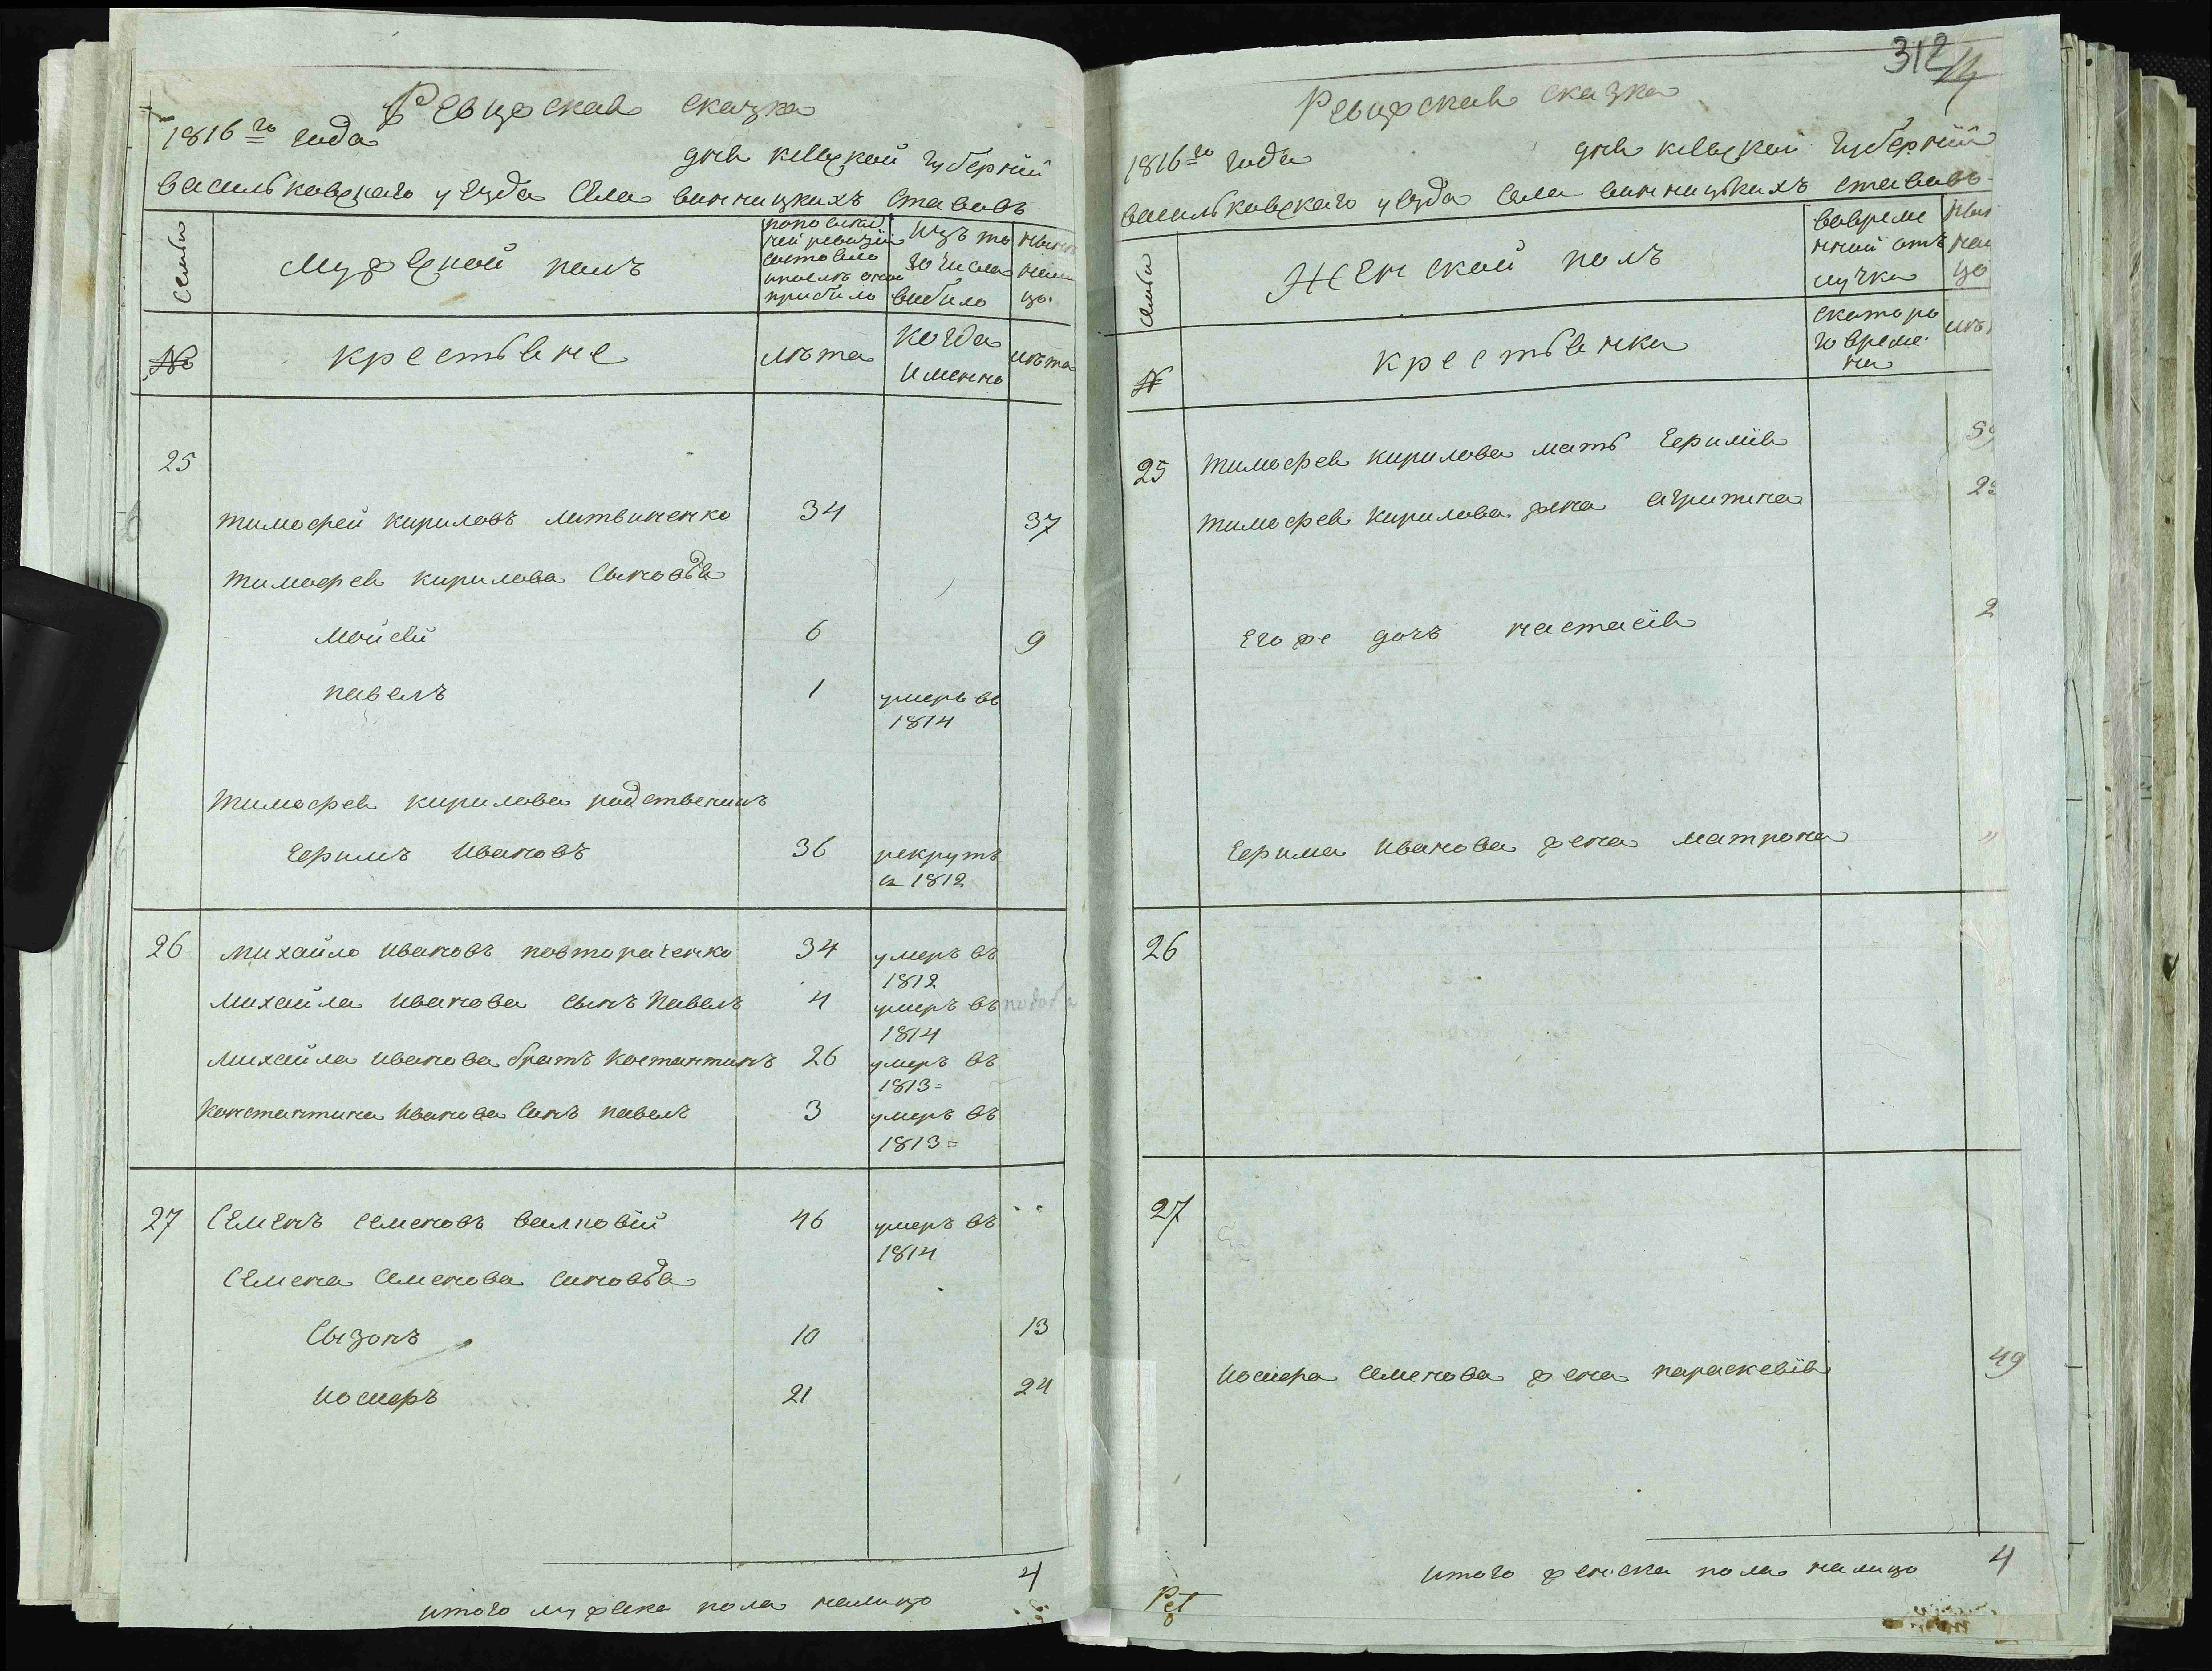 Ревизская сказка
1816го года
дня киевской губернии
васильковскаго уезда села винницкихъ ставовъ
семьи
Мужеской полъ
по последней ревизии состояло и после оной прибило
изъ того числа выбило
ныне на лицо
№
крестьяне
лѣта
когда именно
лѣта
25
тимофей кириловъ литвиненко 34 37
тимофея кирилова сыновья
мойсей 6 9
павелъ 1 умеръ въ 1814
тимофея кирилова родственикъ
Ефимъ Ивановъ 36 рекрутъ в 1812
26 михайло ивановъ повтораченко 34 умеръ въ 1812
михайла иванова сынъ павелъ 4 умеръ въ 1814
михайла иванова братъ костантинъ 26 умеръ въ 1813
константина иванова синъ павелъ 3 умеръ въ 1813
27 Семенъ семеновъ 46 умеръ въ 1814
Семена семенова синовья
Сызонъ 10 13
иосифъ 21 24
4
итого мужеска пола налицо
312
14
Ревизская сказка
1816го года
дня киевской губернии
васильковскаго уезда села винницкихъ ставовъ
семьи
Женской полъ
вовременной отлучки
ныне на лицо
№
крестьянки
с котораго времени
лѣ
25 тимофея кирилова мать Ефимия 59
тимофея кирилова жена агрипина 2
Его же дочь настасия 2
Ефима иванова жена матрона "
26
27
иосифа семенова жена параскевия 49
итого женска пола налицо 4